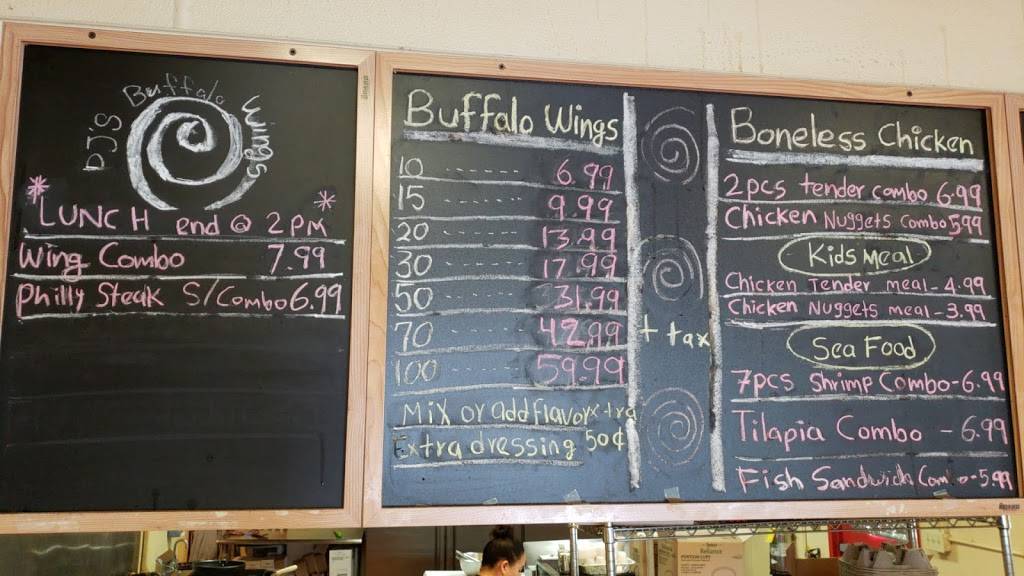 PJ's Buffalo Wings
LUNCH end @ 2 PM
Wing Combo 7.99
Philly Steak S/Combo 6.99
Buffalo Wings
10 ------- 6.99
15 ------- 9.99
20 ------- 13.99
30 ------- 17.99
50 ------- 31.99
70 ------- 42.99
100 ------- 59.99
+ tax
Mix or add flavor xtra
Extra dressing 50¢
Boneless Chicken
2pcs tender combo 6.99
Chicken Nuggets Combo 5.99
Kids Meal
Chicken Tender meal - 4.99
Chicken Nuggets meal - 3.99
Sea Food
7pcs Shrimp Combo - 6.99
Tilapia Combo - 6.99
Fish Sandwich Combo - 5.99
Reliance